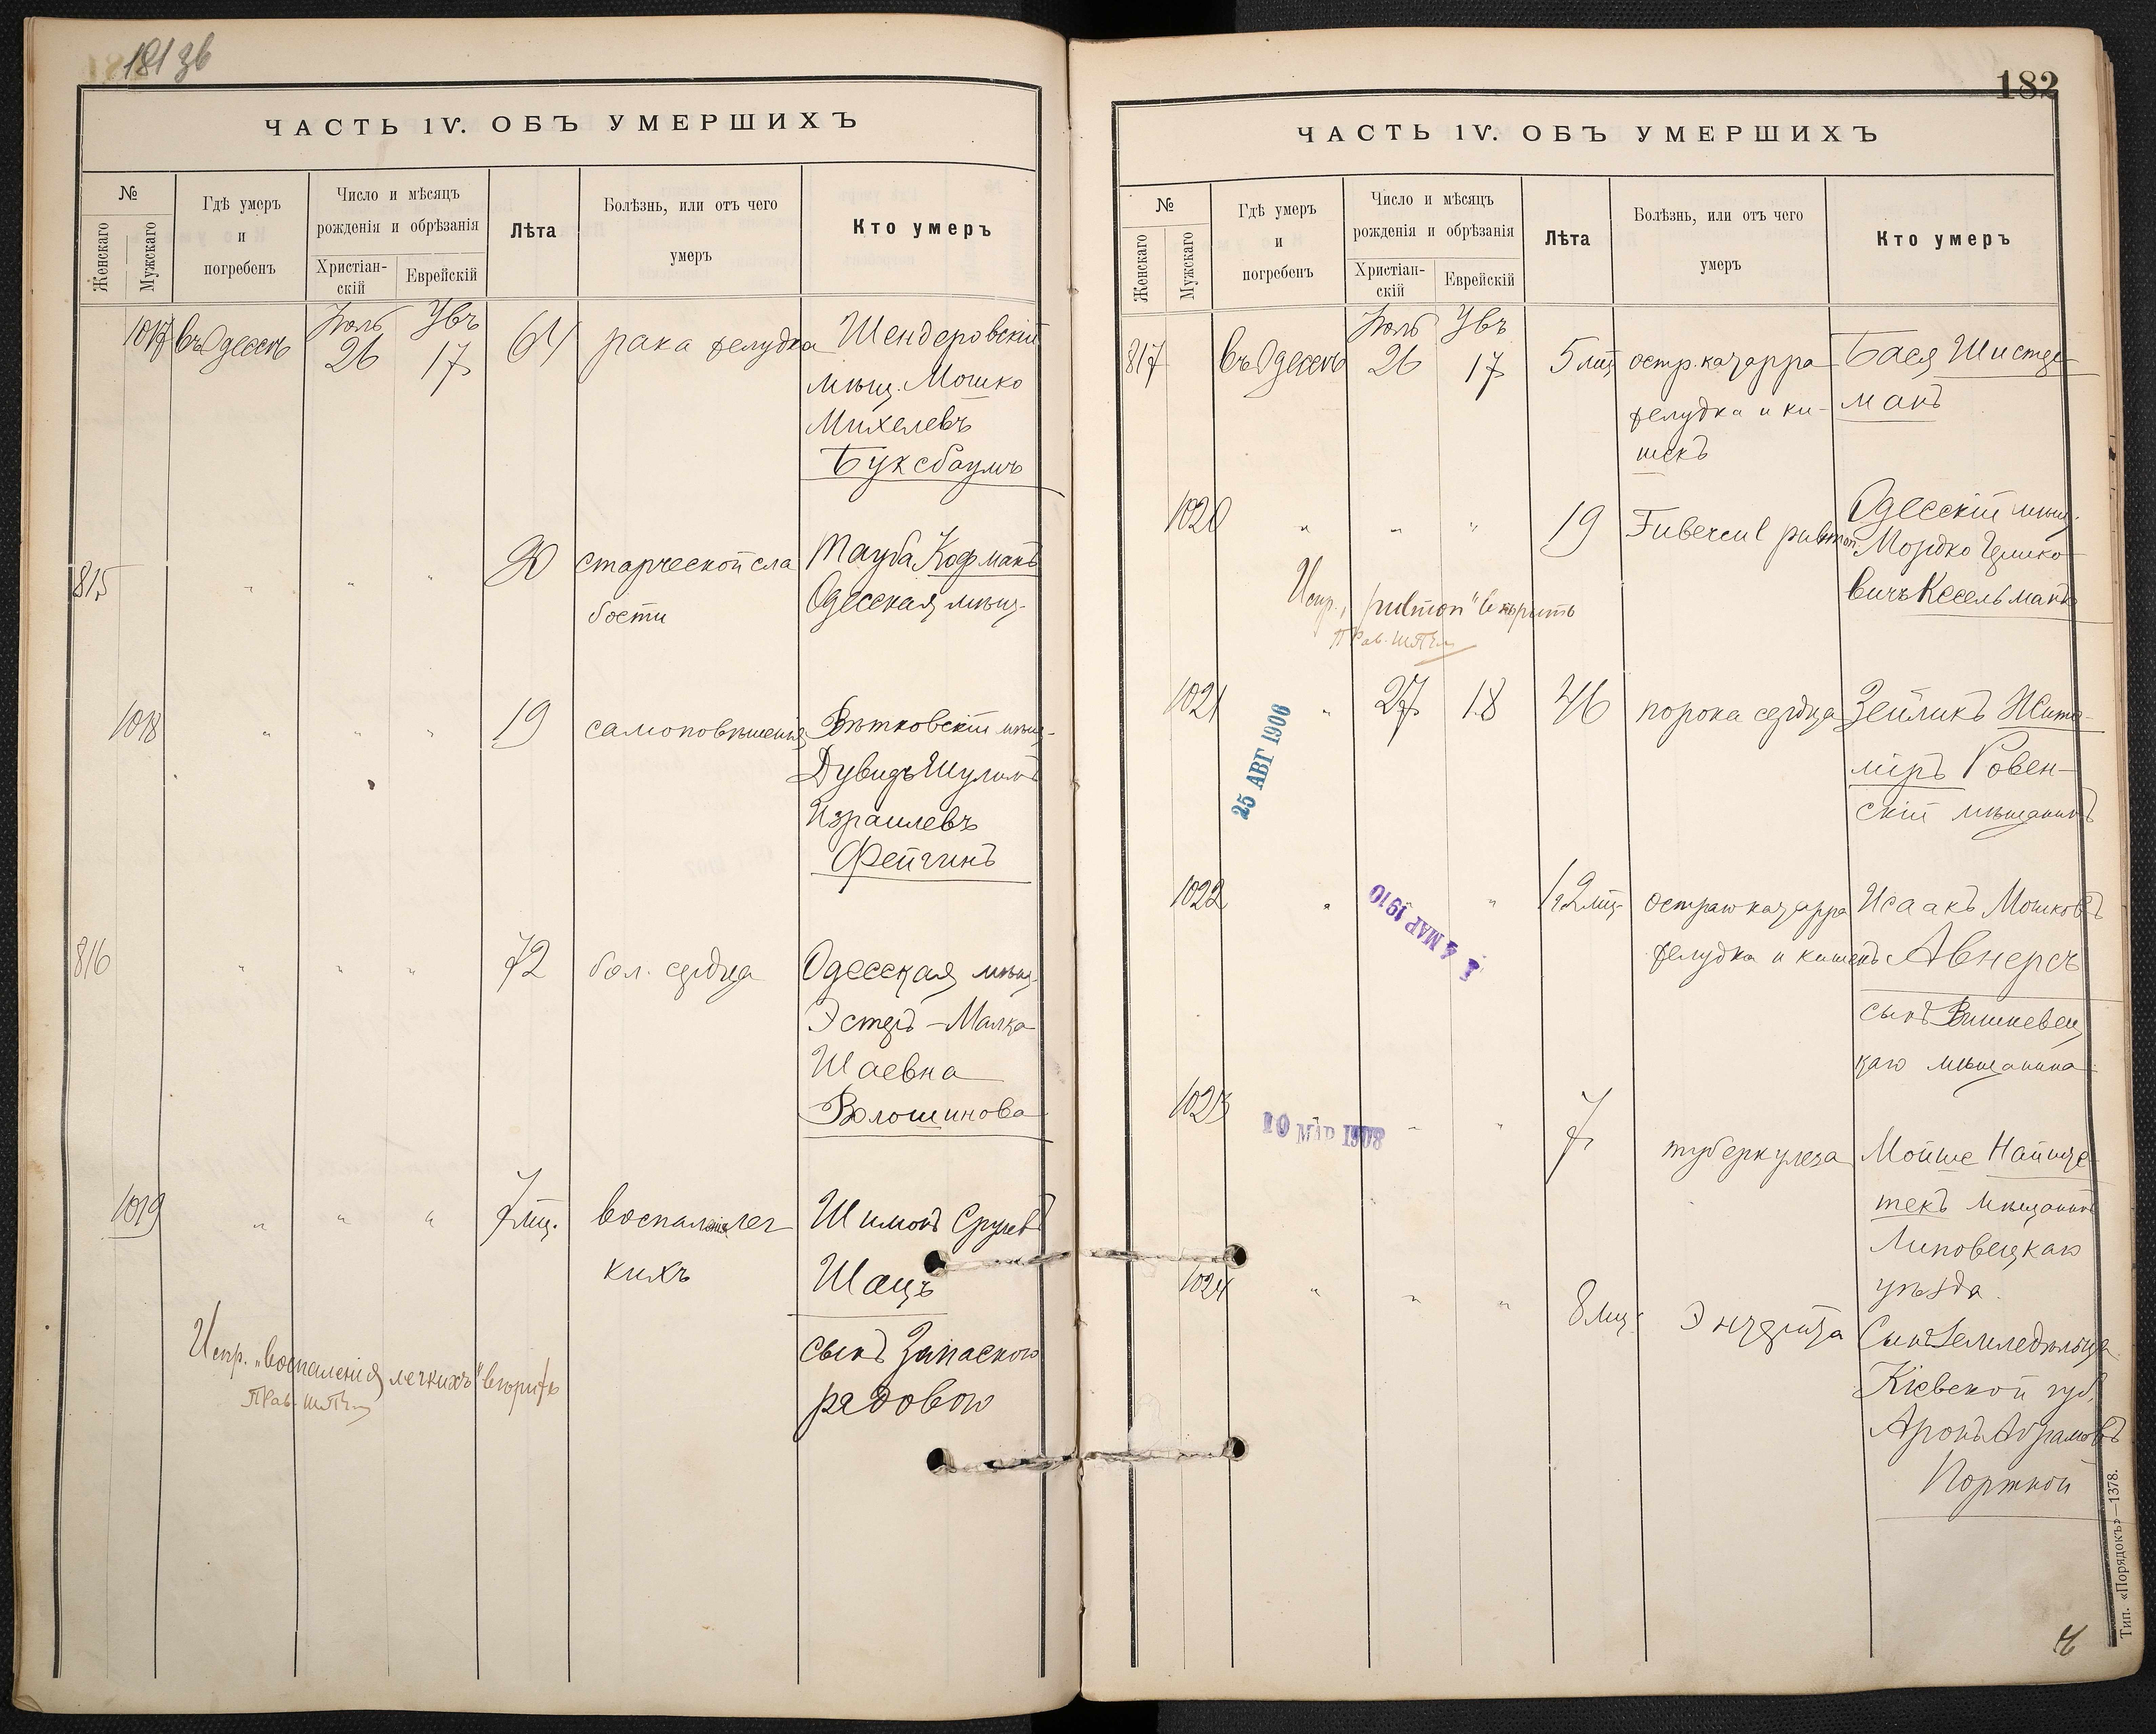 181 зв
ЧАСТЬ IV. ОБЪ УМЕРШИХЪ
№
Женскаго
Мужскаго
Гдѣ умеръ
и
погребенъ
Число и мѣсяцъ
рожденія и обрѣзанія
Христіан-
скій
Еврейскій
Лѣта
Болѣзнь, или отъ чего
умеръ
Кто умеръ
1017 въ Одессѣ Іюль 26 Увъ 17 64 рака желудка Шендеровскій
мѣщ. Мошко
Михелевъ
Буксбаумъ
815 " " " 90 старческой сла
бости
Тауба Кофманъ
Одесская мѣщ.
1018 " " " 19 самоповѣшенія
мѣщ-
Дувидъ Шулимъ
Израилевъ
Фейгинъ
816 " " " 72 бол. сердца Одесская мѣщ.
Эстеръ-Малка
Шаевна
Волошинова
1019 " " " 7 мц. воспаленія лег
кихъ
Шимонъ Срулевъ
Шацъ
сынъ Запасного
рядового
Испр. „воспаленія легкихъ" вѣрить
182
ЧАСТЬ IV. ОБЪ УМЕРШИХЪ
№
Женскаго
Мужскаго
Гдѣ умеръ
и
погребенъ
Число и мѣсяцъ
рожденія и обрѣзанія
Христіан-
скій
Еврейскій
Лѣта
Болѣзнь, или отъ чего
умеръ
Кто умеръ
817 въ Одессѣ Іюль 26 Увъ 17 5 мц остр. катарра
желудка и ки-
шекъ
Бася Шистер-
манъ
1020 " " " 19 Tubercul pulmon
Одесскій мѣщ.
Мордко Ицико
вичъ Кесельманъ
Испр. „pulmon" вѣрить
1021 " 27 18 46 порока сердца Зейликъ Жито-
міръ Ровен-
скій мѣщанинъ
25 АВГ 1906
1022 " " 1 г 2 мц. остраго катарра
желудка и кишекъ
Исаакъ Мошковъ
Авнеръ
сынъ Вишневец
каго мѣщанина
4 МАР 1910
1023 " " 7 туберкулеза Мойше Найште
текъ мѣщанинъ
Липовецкаго
уѣзда.
10 МАР 1908
1024 " " " 8 мц. Энтерита Сынъ Земледѣльца
Кіевской губ.
Аронъ Абрамовъ
Портной
Тип. «Порядокъ»—1378.